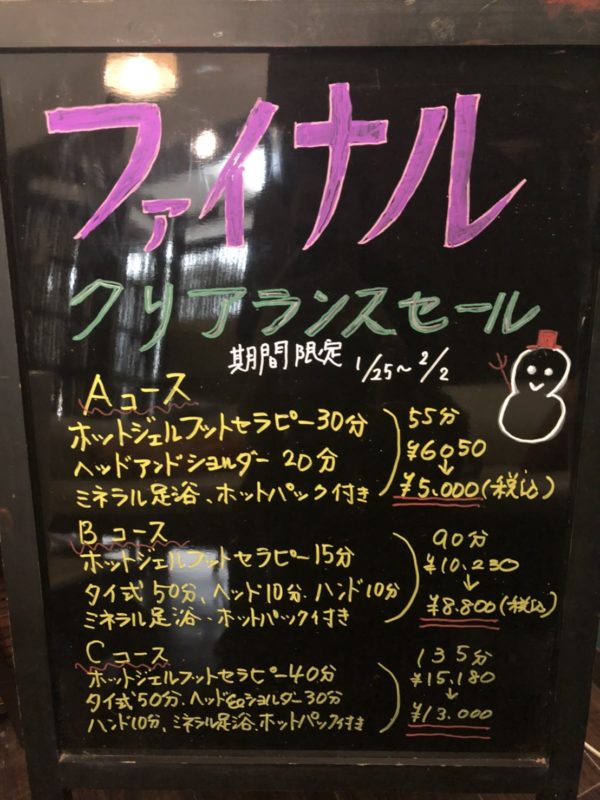 ファイナル
クリアランスセール
期間限定 1/25〜2/2
Aコース
ホットジェルフットセラピー30分
ヘッドアンドショルダー 20分
ミネラル足浴、ホットパック付き
55分
¥6050
↓
¥5.000(税込)
Bコース
ホットジェルフットセラピー15分
タイ式50分、ヘッド10分、ハンド10分
ミネラル足浴・ホットパック付き
90分
¥10.230
↓
¥8.800(税込)
Cコース
ホットジェルフットセラピー40分
タイ式50分、ヘッド&ショルダー30分
ハンド10分、ミネラル足浴、ホットパック付き
135分
¥15.180
↓
¥13.000